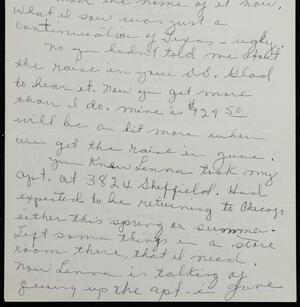 the name of it now.
What I saw was just a
Continuation of Texas - ugly.
No you hadn't told me about
the raise in your S.S. Glad
to hear it. Now you get more
than I do. mine is $929.50
will be a bit more when
we get the raise in June.
You know Lenna took my
apt. at 3824 Sheffield. Had
expected to be returning to Chicago
either this spring or summer.
Left some things in a store
room there, that I'd need.
Now Lenna is talking of
giving up the apt. in June